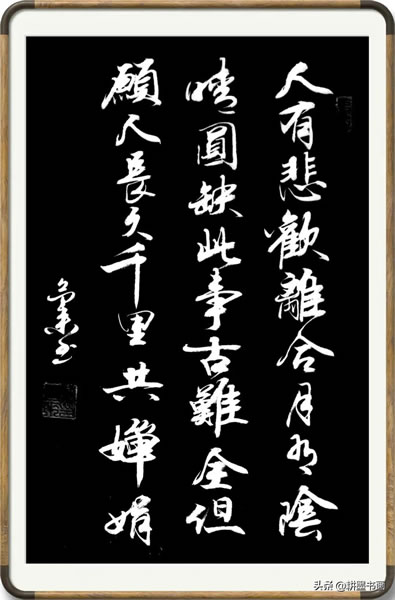 人有悲歡離合月有陰
晴圓缺此事古難全但
願人長久千里共嬋娟
书
头条 @耕墨书